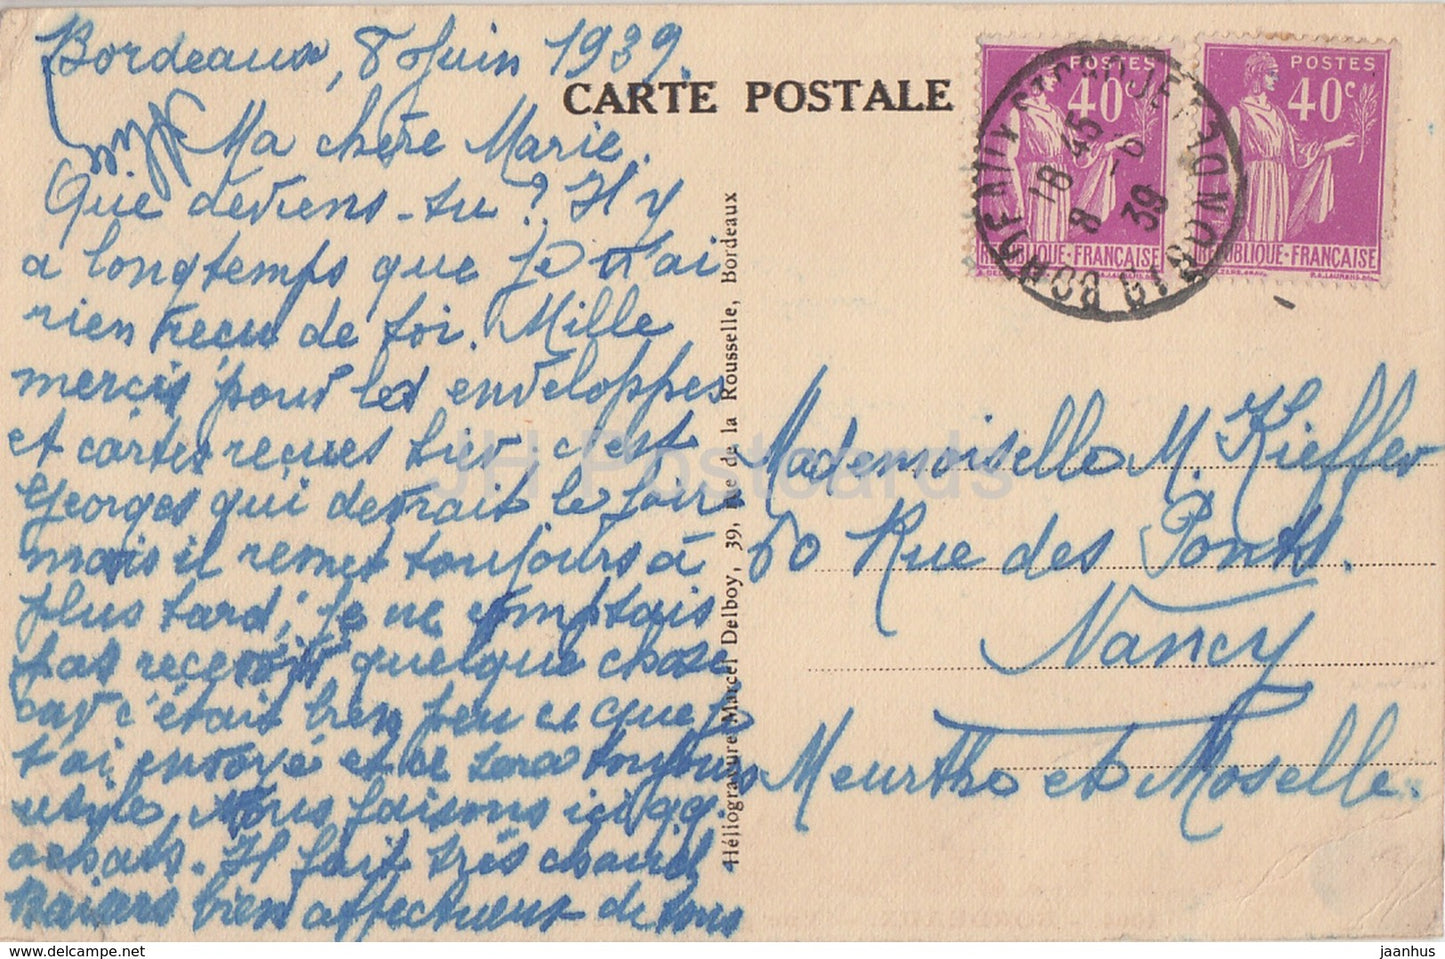 Bordeaux, 8 Juin 1939.
CARTE POSTALE
Ma chère Marie.
Que deviens-tu ? Il y
a longtemps que je n'ai
rien reçu de toi. Mille
mercis pour les enveloppes
et cartes reçues hier, c'est
Georges qui devrait le faire
mais il remet toujours à
plus tard; je ne comptais
pas recevoir quelque chose
car c'était bien peu ce que je
t'ai envoyé et ce sera toujours
utile. Nous faisons ici qq.
achats. Il fait très chaud.
Baisers bien affectueux de tous
Héliogravure Marcel Delboy, 39, Rue de la Rousselle, Bordeaux
POSTES
40c
REPUBLIQUE-FRANÇAISE
POSTES
40c
REPUBLIQUE-FRANÇAISE
18 45
8 -6
39
Mademoiselle M. Kieffer
60 Rue des Ponts.
Nancy
Meurthe et Moselle.
JH Postcards
fr.delcampe.net
jaanhus